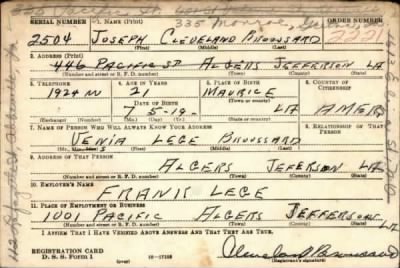 335 Monroe,
SERIAL NUMBER 1. NAME (Print) ORDER NUMBER
2504 JOSEPH CLEVELAND BROUSSARD
(First) (Middle) (Last)
2. ADDRESS (Print)
446 PACIFIC ST ALGERS JEFFERSON LA
(Number and street or R. F. D. number) (Town) (County) (State)
3. TELEPHONE 4. AGE IN YEARS 5. PLACE OF BIRTH 6. COUNTRY OF CITIZENSHIP
1924 W 21 MAURICE
DATE OF BIRTH (Town or county)
7 5-19- LA AMER
(Exchange) (Number) (Mo.) (Day) (Yr.) (State or country)
7. NAME OF PERSON WHO WILL ALWAYS KNOW YOUR ADDRESS 8. RELATIONSHIP OF THAT PERSON
VENIA LEGE BROUSSARD
(Mr., Mrs., Miss) (First) (Middle) (Last)
9. ADDRESS OF THAT PERSON
ALGERS JEFERSON LA
(Number and street or R. F. D. number) (Town) (County) (State)
10. EMPLOYER'S NAME
FRANIS LEGE
11. PLACE OF EMPLOYMENT OR BUSINESS
1001 PACIFIC ALGERS JEFFERSON LA
(Number and street or R. F. D. number) (Town) (County) (State)
I AFFIRM THAT I HAVE VERIFIED ABOVE ANSWERS AND THAT THEY ARE TRUE.
REGISTRATION CARD
D. S. S. FORM 1 (over) 16-17105 (Registrant's signature)